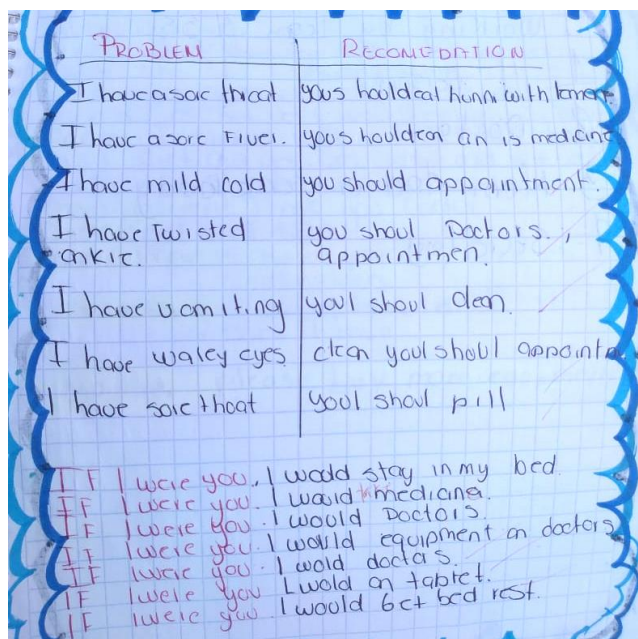 PROBLEM RECOMEDATION
I have a sore throat yous hould eat hunn with lemen.
I have a sore Fiver. yous hould can an is medicine
I have mild cold you should appointment.
I have Twisted you shoul Doctors.,
ankle. appointmen.
I have vomiting youl shoul clean.
I have watey eyes clean youl shoul appoint
I have sore thoat youl shoul pill
IF I were you, I woodd stay in my bed.
IF I were you. I would medicine.
IF I were you. I would Doctors.
IF I were you. I would equipment an doctors
IF I were you. I wold doctors.
IF I were you I wold an tablet.
IF I were you. I would bet bed rest.